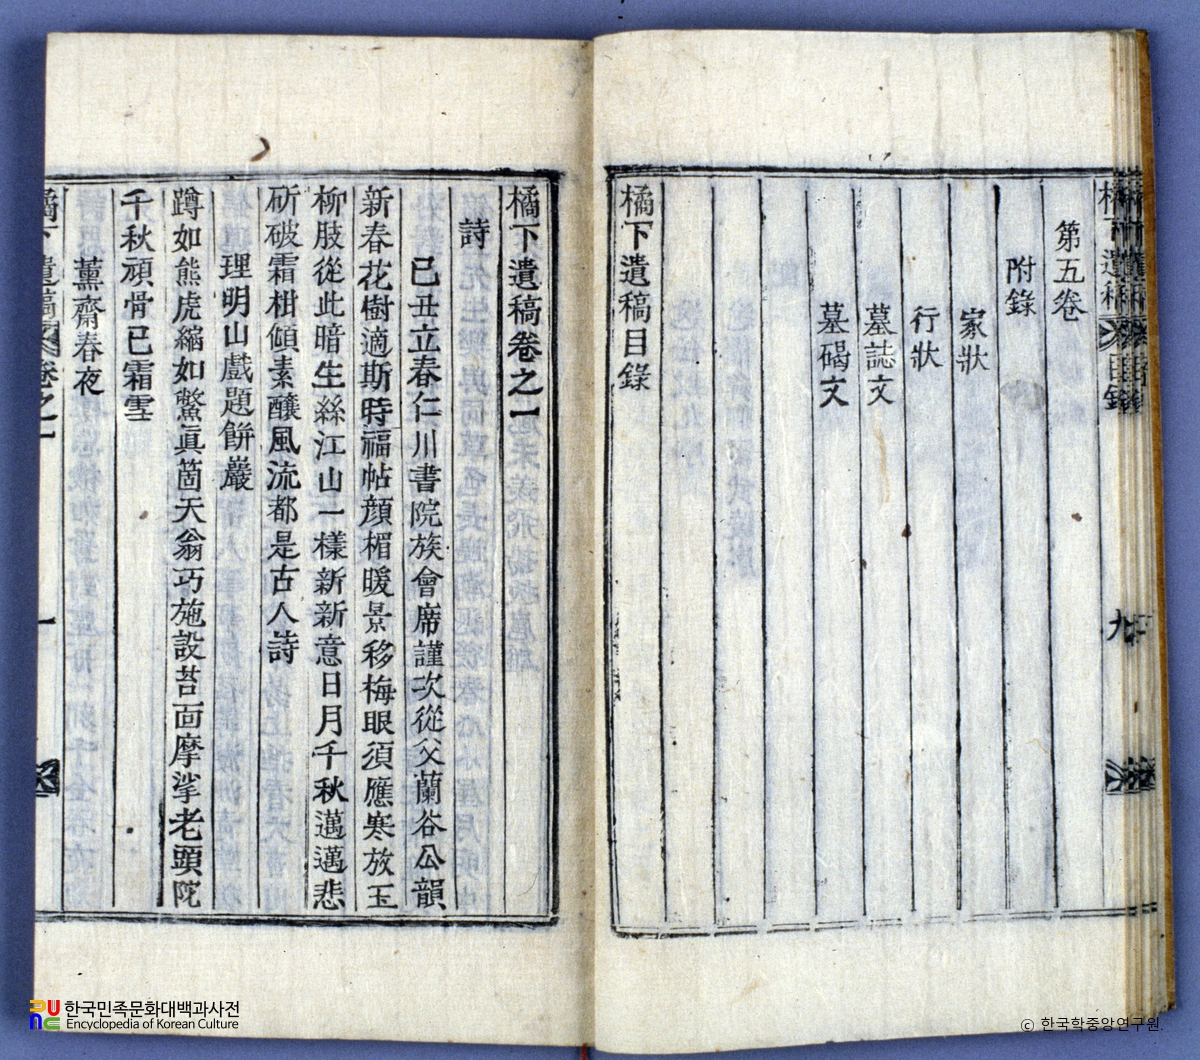 第五卷
附錄
家狀
行狀
墓誌文
墓碣文
橘下遺稿目錄
橘下遺稿卷之一
詩
己丑立春仁川書院族會席謹次從父蘭谷公韻
新春花樹適斯時福帖顔楣暖景移梅眼須應寒放玉
柳肢從此暗生絲江山一樣新新意日月千秋邁邁悲
斫破霜柑傾素釀風流都是古人詩
理明山戲題餅巖
蹲如熊虎縮如鱉眞箇天翁巧施設苔面摩挲老頭陀
千秋頑骨已霜雪
薰齋春夜
橘下遺稿 卷之一
一
한국민족문화대백과사전
Encyclopedia of Korean Culture
© 한국학중앙연구원.